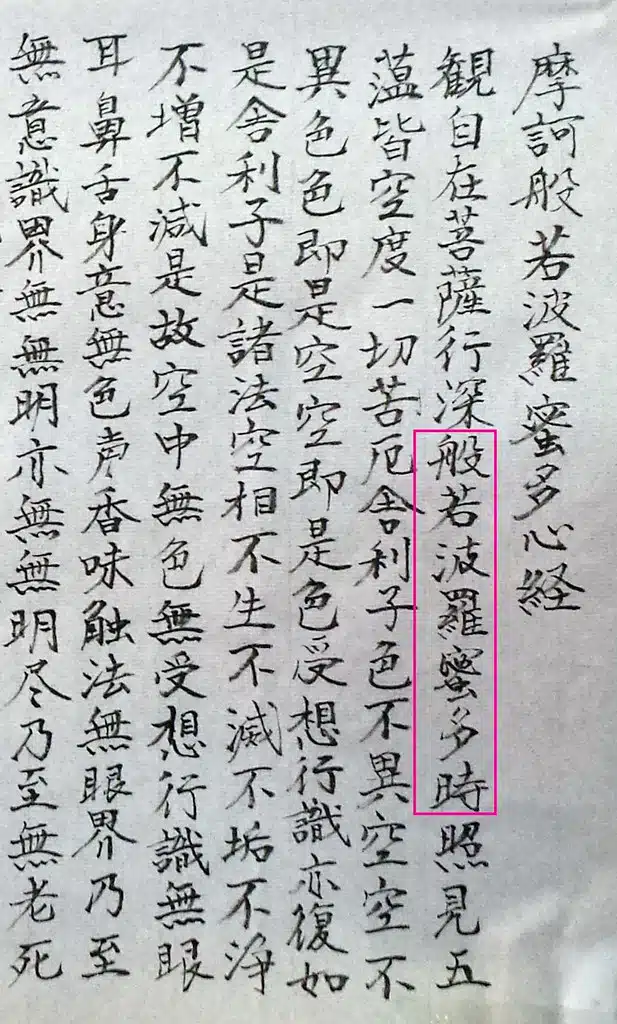 摩訶般若波羅蜜多心経
観自在菩薩行深般若波羅蜜多時照見五
蕰皆空度一切苦厄舎利子色不異空空不
異色色即是空空即是色受想行識亦復如
是舎利子是諸法空相不生不滅不垢不浄
不増不減是故空中無色無受想行識無眼
耳鼻舌身意無色声香味触法無眼界乃至
無意識界無無明亦無無明尽乃至無老死